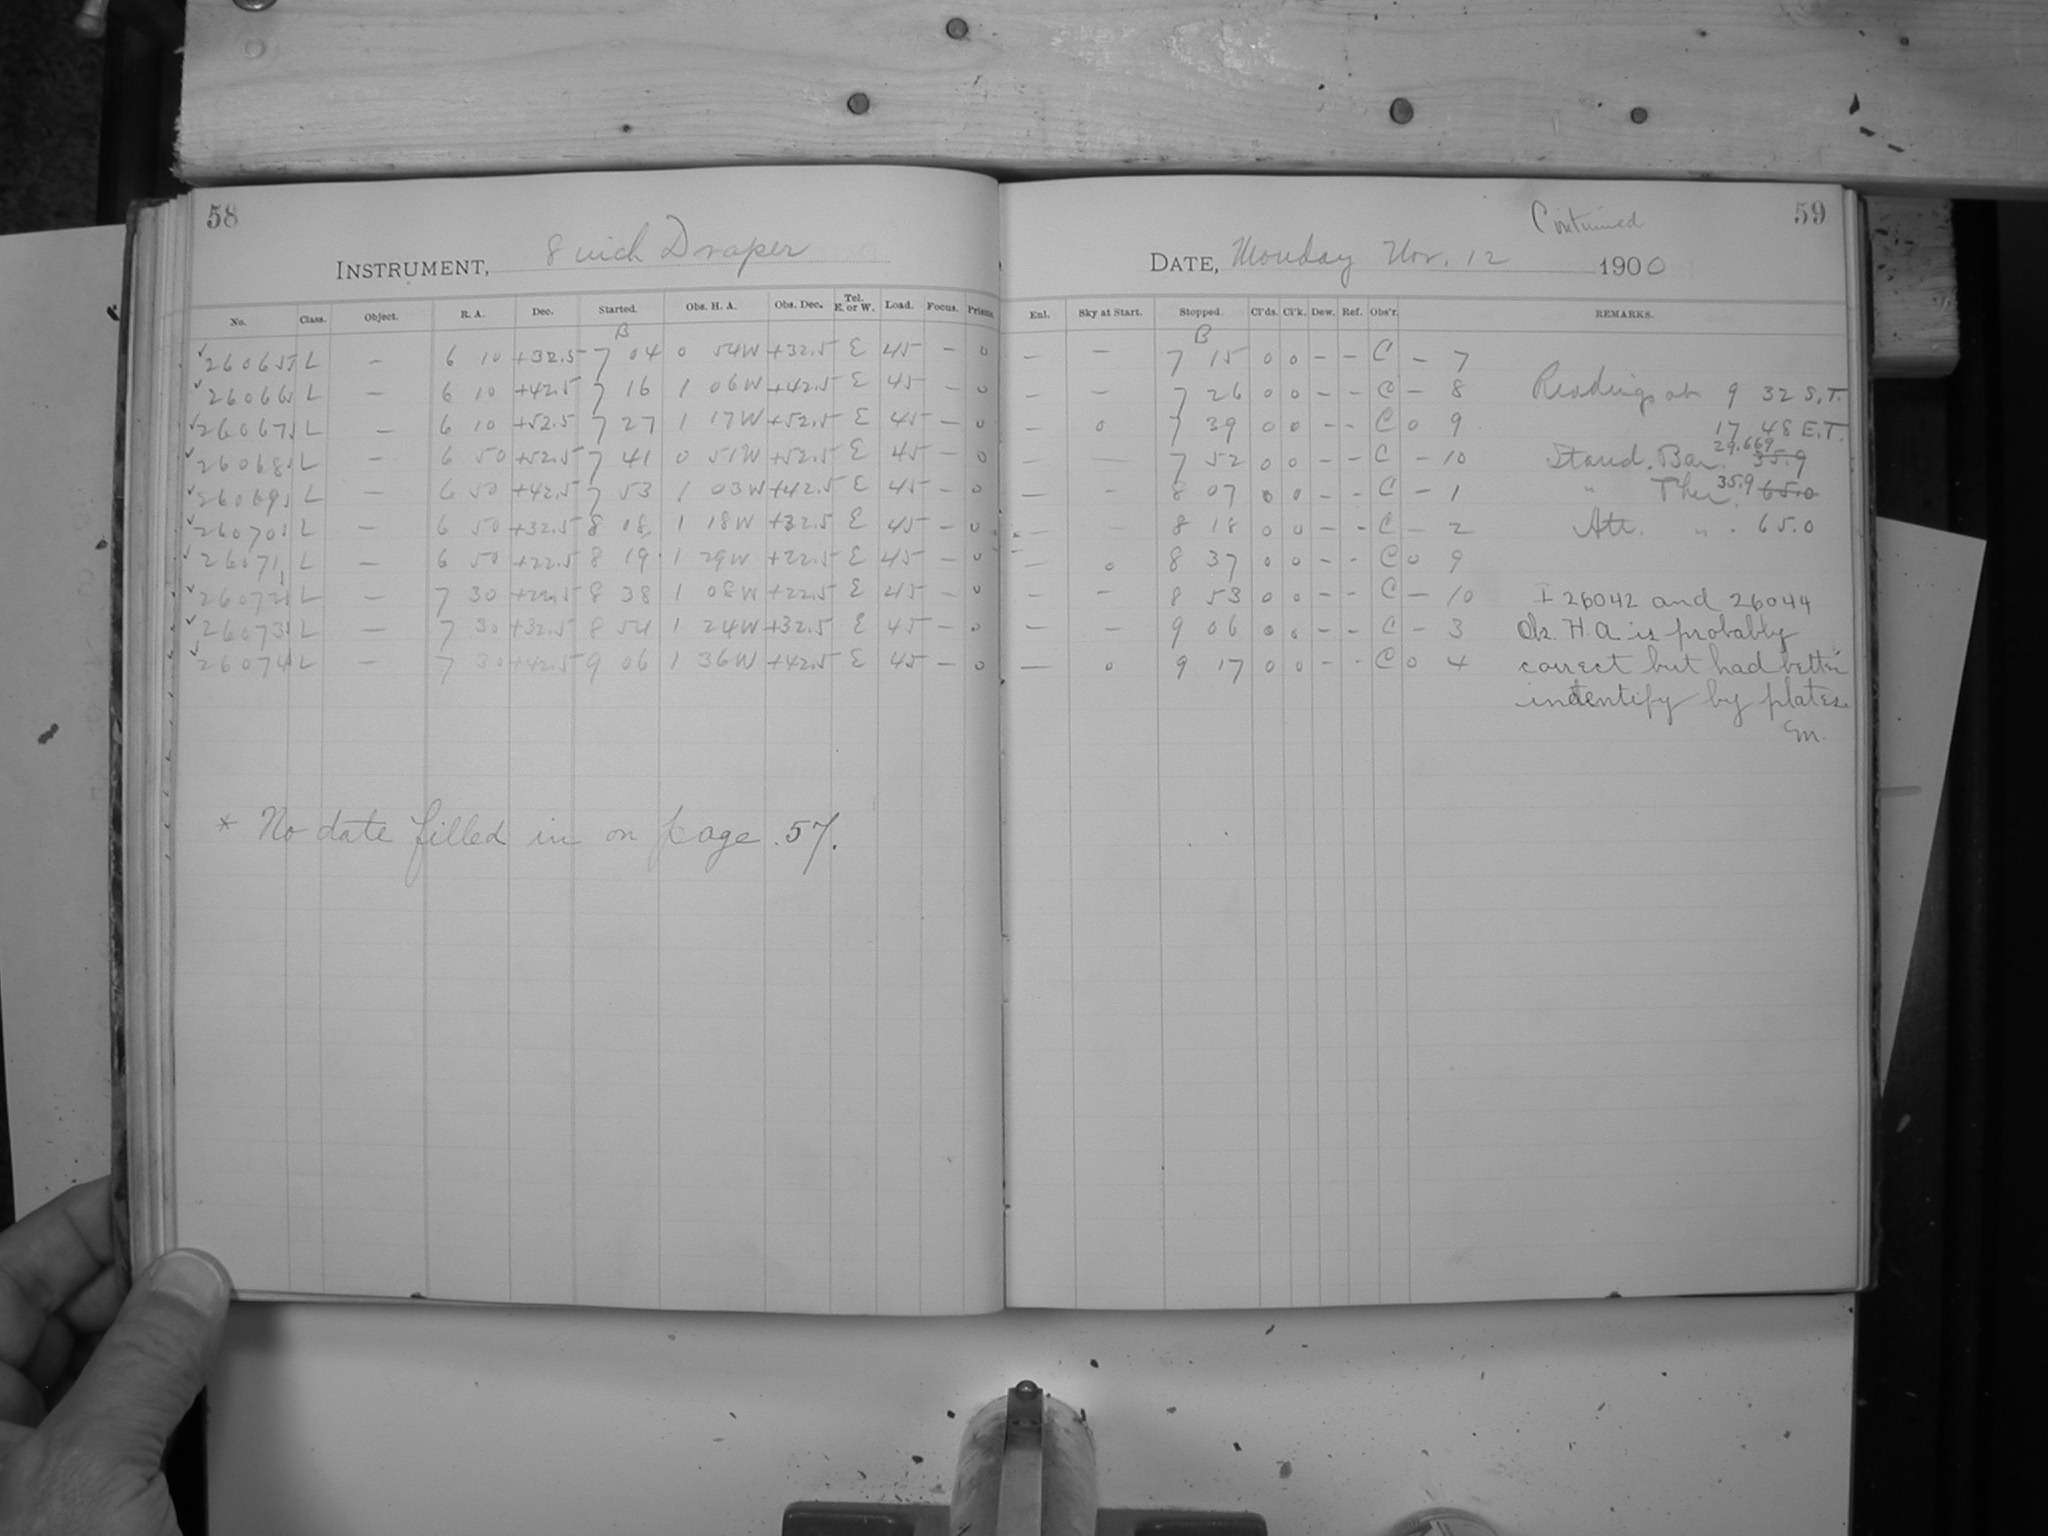 58
INSTRUMENT, 8 inch Draper
No. Class. Object. R. A. Dec. Started. Obs. H. A. Obs. Dec. Tel. E. or W. Load. Focus. Prisms.
B
26065 L — 6 10 +32.5 7 04 0 54W +32.5 E 45 — 0
26066 L — 6 10 +42.5 7 16 1 06W +42.5 E 45 — 0
26067 L — 6 10 +52.5 7 27 1 17W +52.5 E 45 — 0
26068 L — 6 50 +52.5 7 41 0 51W +52.5 E 45 — 0
26069 L — 6 50 +42.5 7 53 1 03W +42.5 E 45 — 0
26070 L — 6 50 +32.5 8 08 1 18W +32.5 E 45 — 0
26071 L — 6 50 +22.5 8 19 1 29W +22.5 E 45 — 0
26072 L — 7 30 +22.5 8 38 1 08W +22.5 E 45 — 0
26073 L — 7 30 +32.5 8 54 1 24W +32.5 E 45 — 0
26074 L — 7 30 +42.5 9 06 1 36W +42.5 E 45 — 0
* No date filled in on page 57.
Continued
59
DATE, Monday Nov. 12 1900
Enl. Sky at Start. Stopped. Cl'ds. Cl'k. Dew. Ref. Obs'r. REMARKS.
B
— — 7 15 0 0 – – C – 7
— — 7 26 0 0 – – C – 8 Readings at 9 32 S.T.
— 0 7 39 0 0 – – C 0 9 17 48 E.T.
— — 7 52 0 0 – – C – 10 Stand. Bar. 29.669 35.9
— — 8 07 0 0 – – C – 1 " Ther. 35.9 65.0
— — 8 18 0 0 – – C – 2 Att. " . 65.0
— 0 8 37 0 0 – – C 0 9
— — 8 53 0 0 – – C – 10 I 26042 and 26044
— — 9 06 0 0 – – C – 3 Ob. H.A. is probably
— 0 9 17 0 0 – – C 0 4 correct but had better
indentify by plates.